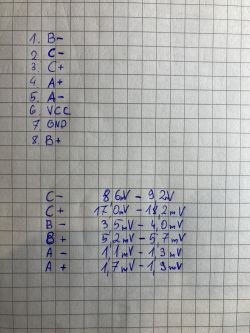 1. B-
2 C-
3 C+
4 A+
5. A-
6 VCC
7. GND
8. B+
C- 8,6mV - 9,2V
C+ 17,0mV - 18,2mV
B- 3,5mV - 4,0mV
B+ 5,2mV - 5,7mV
A- 1,1mV - 1,3mV
A+ 1,7mV - 1,9mV